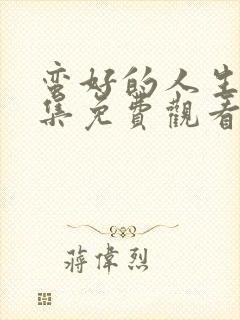 蛮好的人生
集免費觀看
蔣偉烈